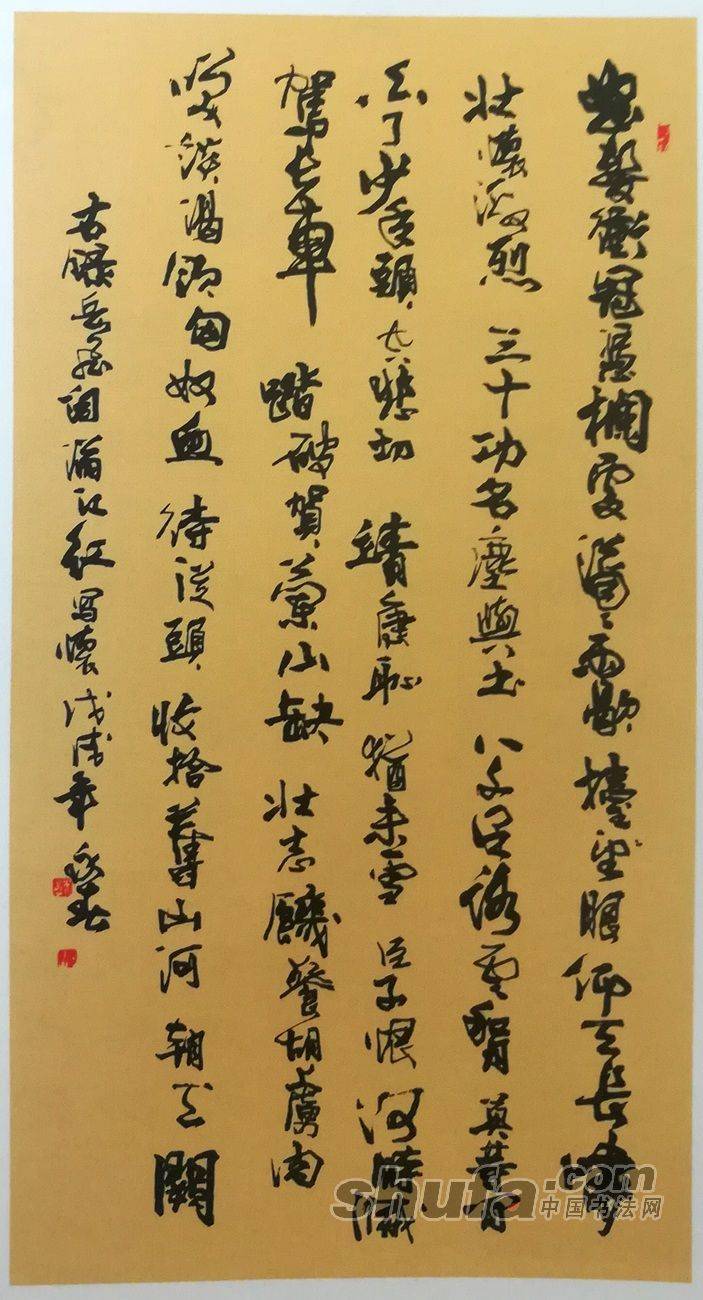 怒髮衝冠憑欄處瀟瀟雨歇擡望眼仰天長嘯
壯懷激烈 三十功名塵與土 八千里路雲和月 莫等閒
白了少年頭空悲切 靖康恥 猶未雪 臣子恨 何時滅
駕長車 踏破賀蘭山缺 壯志饑餐胡虜肉
笑談渴飲匈奴血 待從頭 收拾舊山河 朝天闕
岳飛詞滿江紅寫懷戊戌年
shufa.com
中国书法网